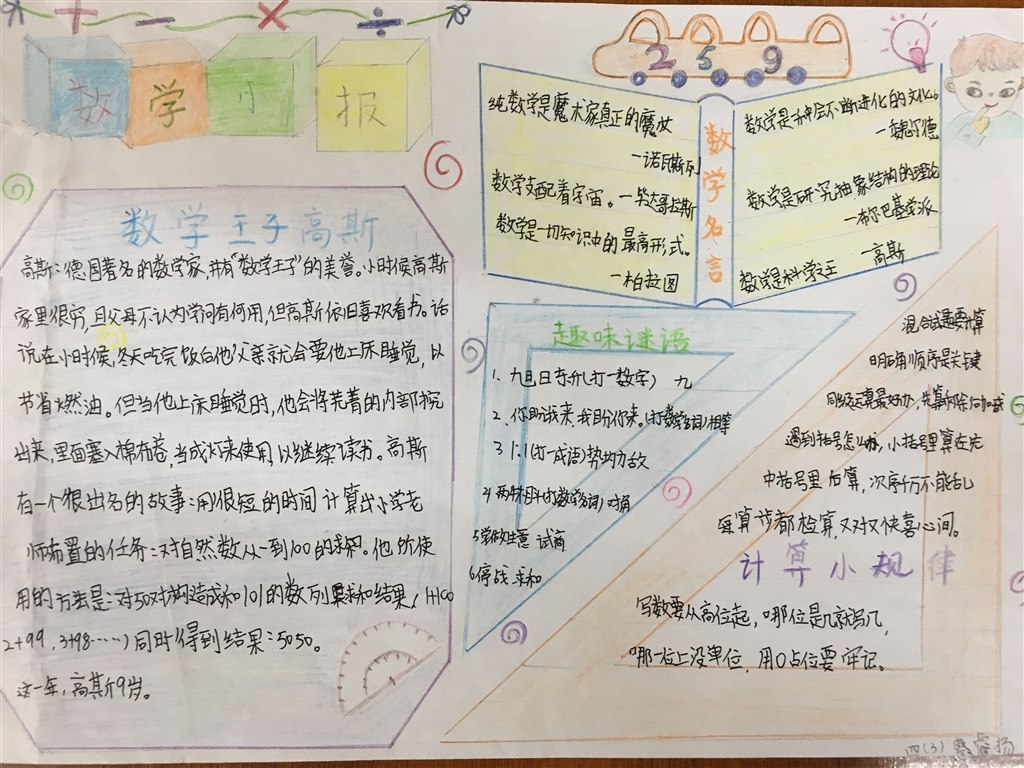 + − × ÷
数学小报
数学王子高斯
高斯:德国著名的数学家,并有“数学王子”的美誉。小时候高斯
家里很穷,且父母不认为学问有何用,但高斯依旧喜欢看书。话
说在小时候,冬天吃完饭后他父亲就会要他上床睡觉,以
节省燃油。但当他上床睡觉时,他会将芜菁的内部挖
出来,里面塞入棉布卷,当成灯来使用,以继续读书。高斯
有一个很出名的故事:用很短的时间计算出小学老
师布置的任务:对自然数从一到100的求和。他所使
用的方法是:对50对构造成和101的数列累求和结果(1+100
2+99,3+98……)同时得到结果:5050。
这一年,高斯9岁。
2 5 9
数学名言
纯数学是魔术家真正的魔杖
—诺瓦斯列
数学支配着宇宙。—毕达哥拉斯
数学是一切知识中的最高形式。
—柏拉图
数学是一种会不断进化的文化。
—魏尔德
数学是研究抽象结构的理论
—布尔巴基学派
数学是科学之王
—高斯
趣味谜语
1. 九月日夺分(打一数字) 九
2. 你盼我来,我盼你来。(打数学名词)相等
3 1:1(打一成语)势均力敌
4 两牛相斗(打数学名词)对角
5 学做生意 试商
6 停战 求和
混合试题要计算
明确顺序是关键
同级运算最好办,先算乘除后加减
遇到括号怎么办,小括号里算在先
中括号里后算,次序千万不能乱
每算一步都检算,又对又快喜心间。
计算小规律
写数要从高位起,哪位是几就写几,
哪一位上没单位,用0占位要牢记。
四(3)